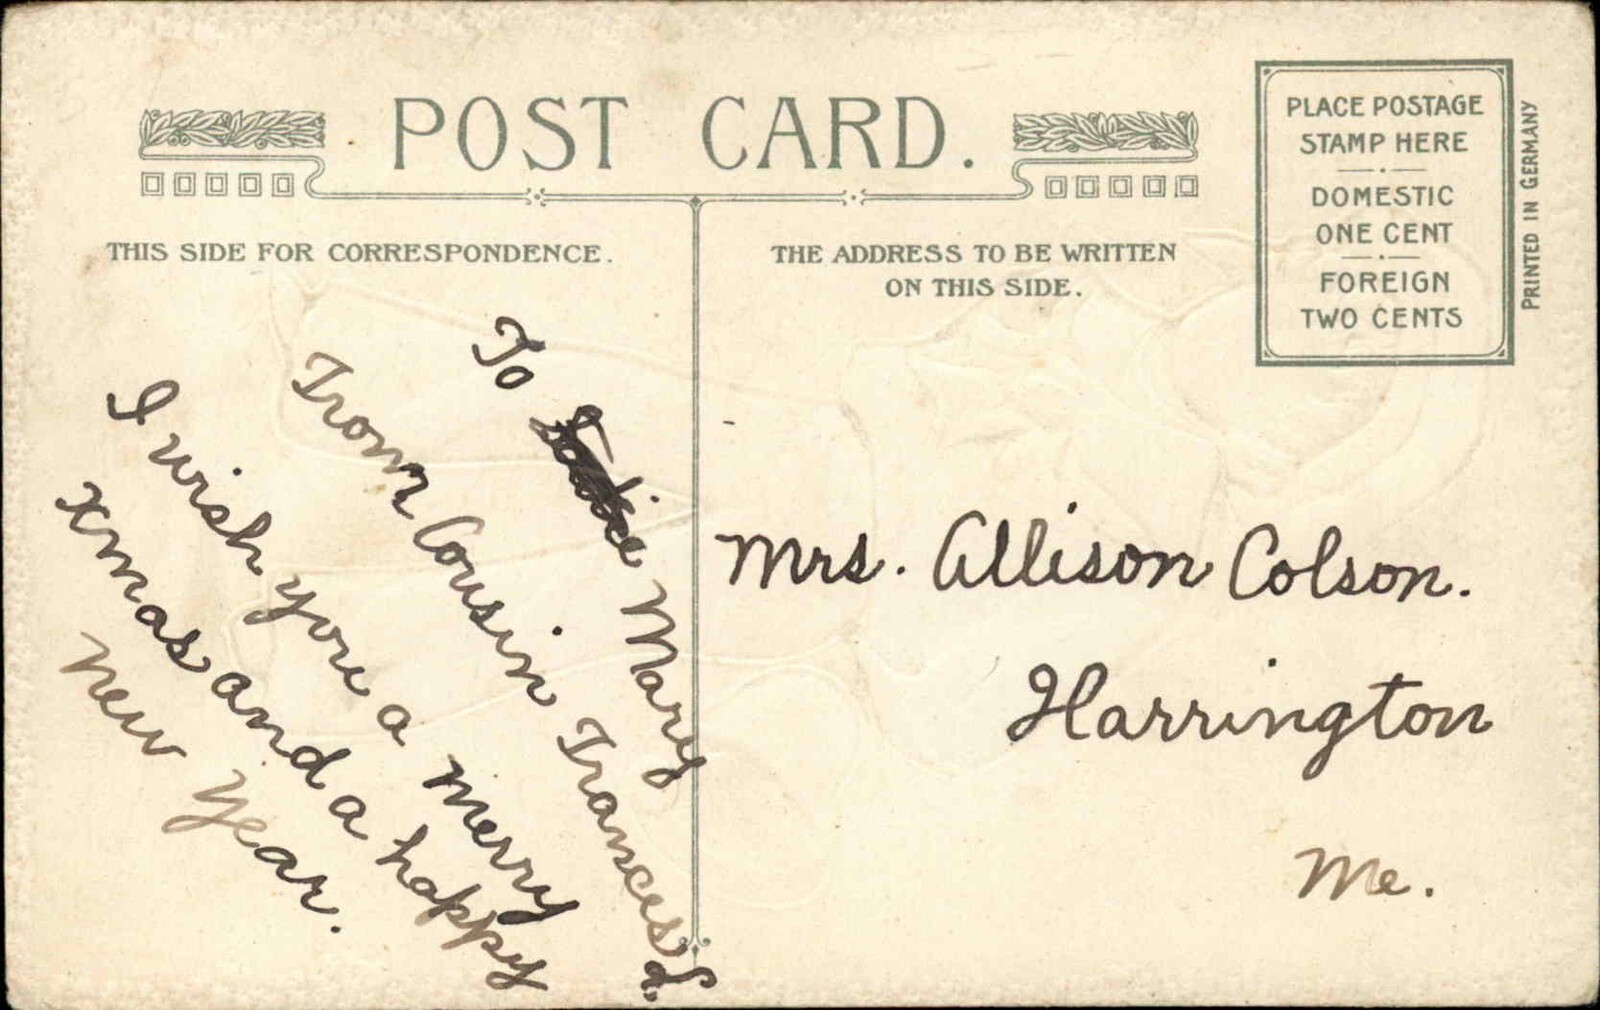 POST CARD.
PLACE POSTAGE
STAMP HERE
DOMESTIC
ONE CENT
FOREIGN
TWO CENTS
PRINTED IN GERMANY
THIS SIDE FOR CORRESPONDENCE.
THE ADDRESS TO BE WRITTEN
ON THIS SIDE.
To Mary
From Cousin Frances L.
I wish you a merry
xmas and a happy
new year.
Mrs. Allison Colson.
Harrington
Me.